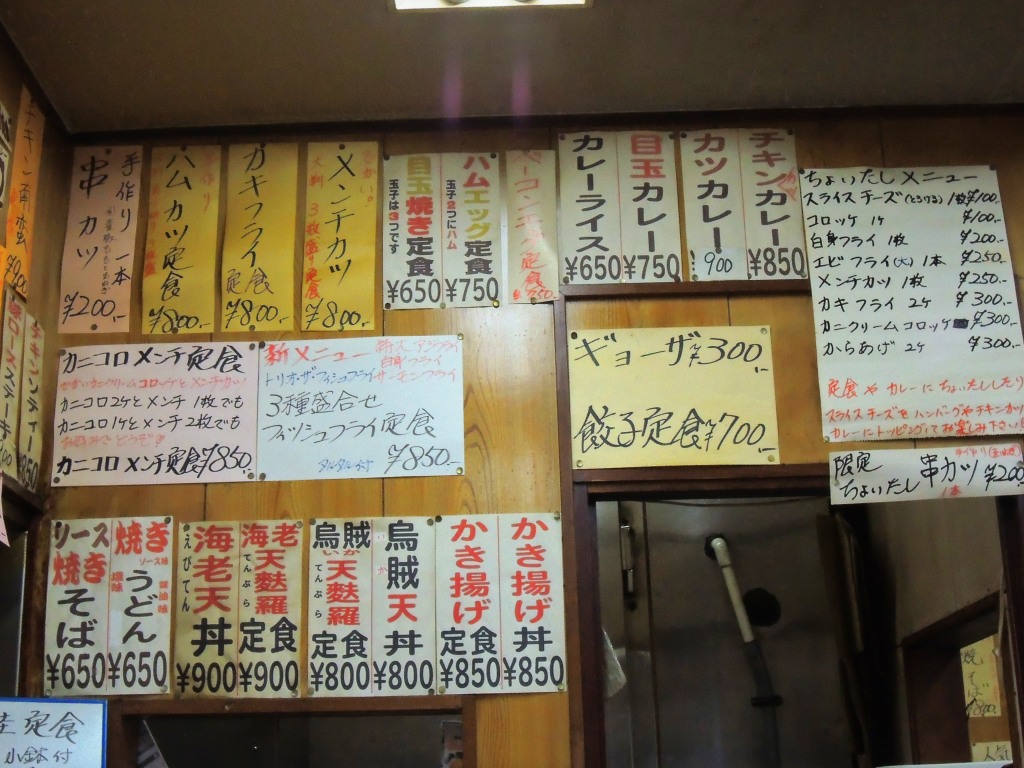 手作り一本
串カツ
¥200.-
ハムカツ定食
¥800.-
カキフライ定食
¥800.-
メンチカツ
大判 3枚盛り定食
¥800.-
目玉焼き定食
玉子は3つです
¥650
ハムエッグ定食
玉子2つにハム
¥750
カレーライス
¥650
目玉カレー
¥750
カツカレー
900
チキンカレー
¥850
ちょいたしメニュー
スライスチーズ(とろける) 1枚 ¥100.
コロッケ 1ケ ¥100.
白身フライ 1枚 ¥200.-
エビフライ(大) 1本 ¥250.-
メンチカツ 1枚 ¥250.-
カキフライ 2ケ ¥300.-
カニクリームコロッケ ¥300.-
からあげ 2ケ ¥300.-
定食やカレーにちょいたししたり
スライスチーズをハンバーグやチキンカツ
カレーにトッピングしてお楽しみ下さい!
限定
ちょいたし 串カツ ¥200
1本
カニコロメンチ定食
カニコロ2ケとメンチ1枚でも
カニコロ1ケとメンチ2枚でも
お好みでどうぞ!!
カニコロメンチ定食¥850
新メニュー
白身フライ
トリオ・ザ・フィッシュフライ サーモンフライ
3種盛合せ
フィッシュフライ定食
タルタル付 ¥850.-
ギョーザ ¥300.-
餃子定食 ¥700.-
ソース焼きそば
¥650
焼きうどん
ソース味
醤油味
塩味
¥650
海老天丼
えびてん
¥900
海老天麩羅定食
てんぷら
¥900
烏賊天麩羅定食
いか
てんぷら
¥800
烏賊天丼
いか
¥800
かき揚げ定食
¥850
かき揚げ丼
¥850
定食
小鉢付
焼そば
人気